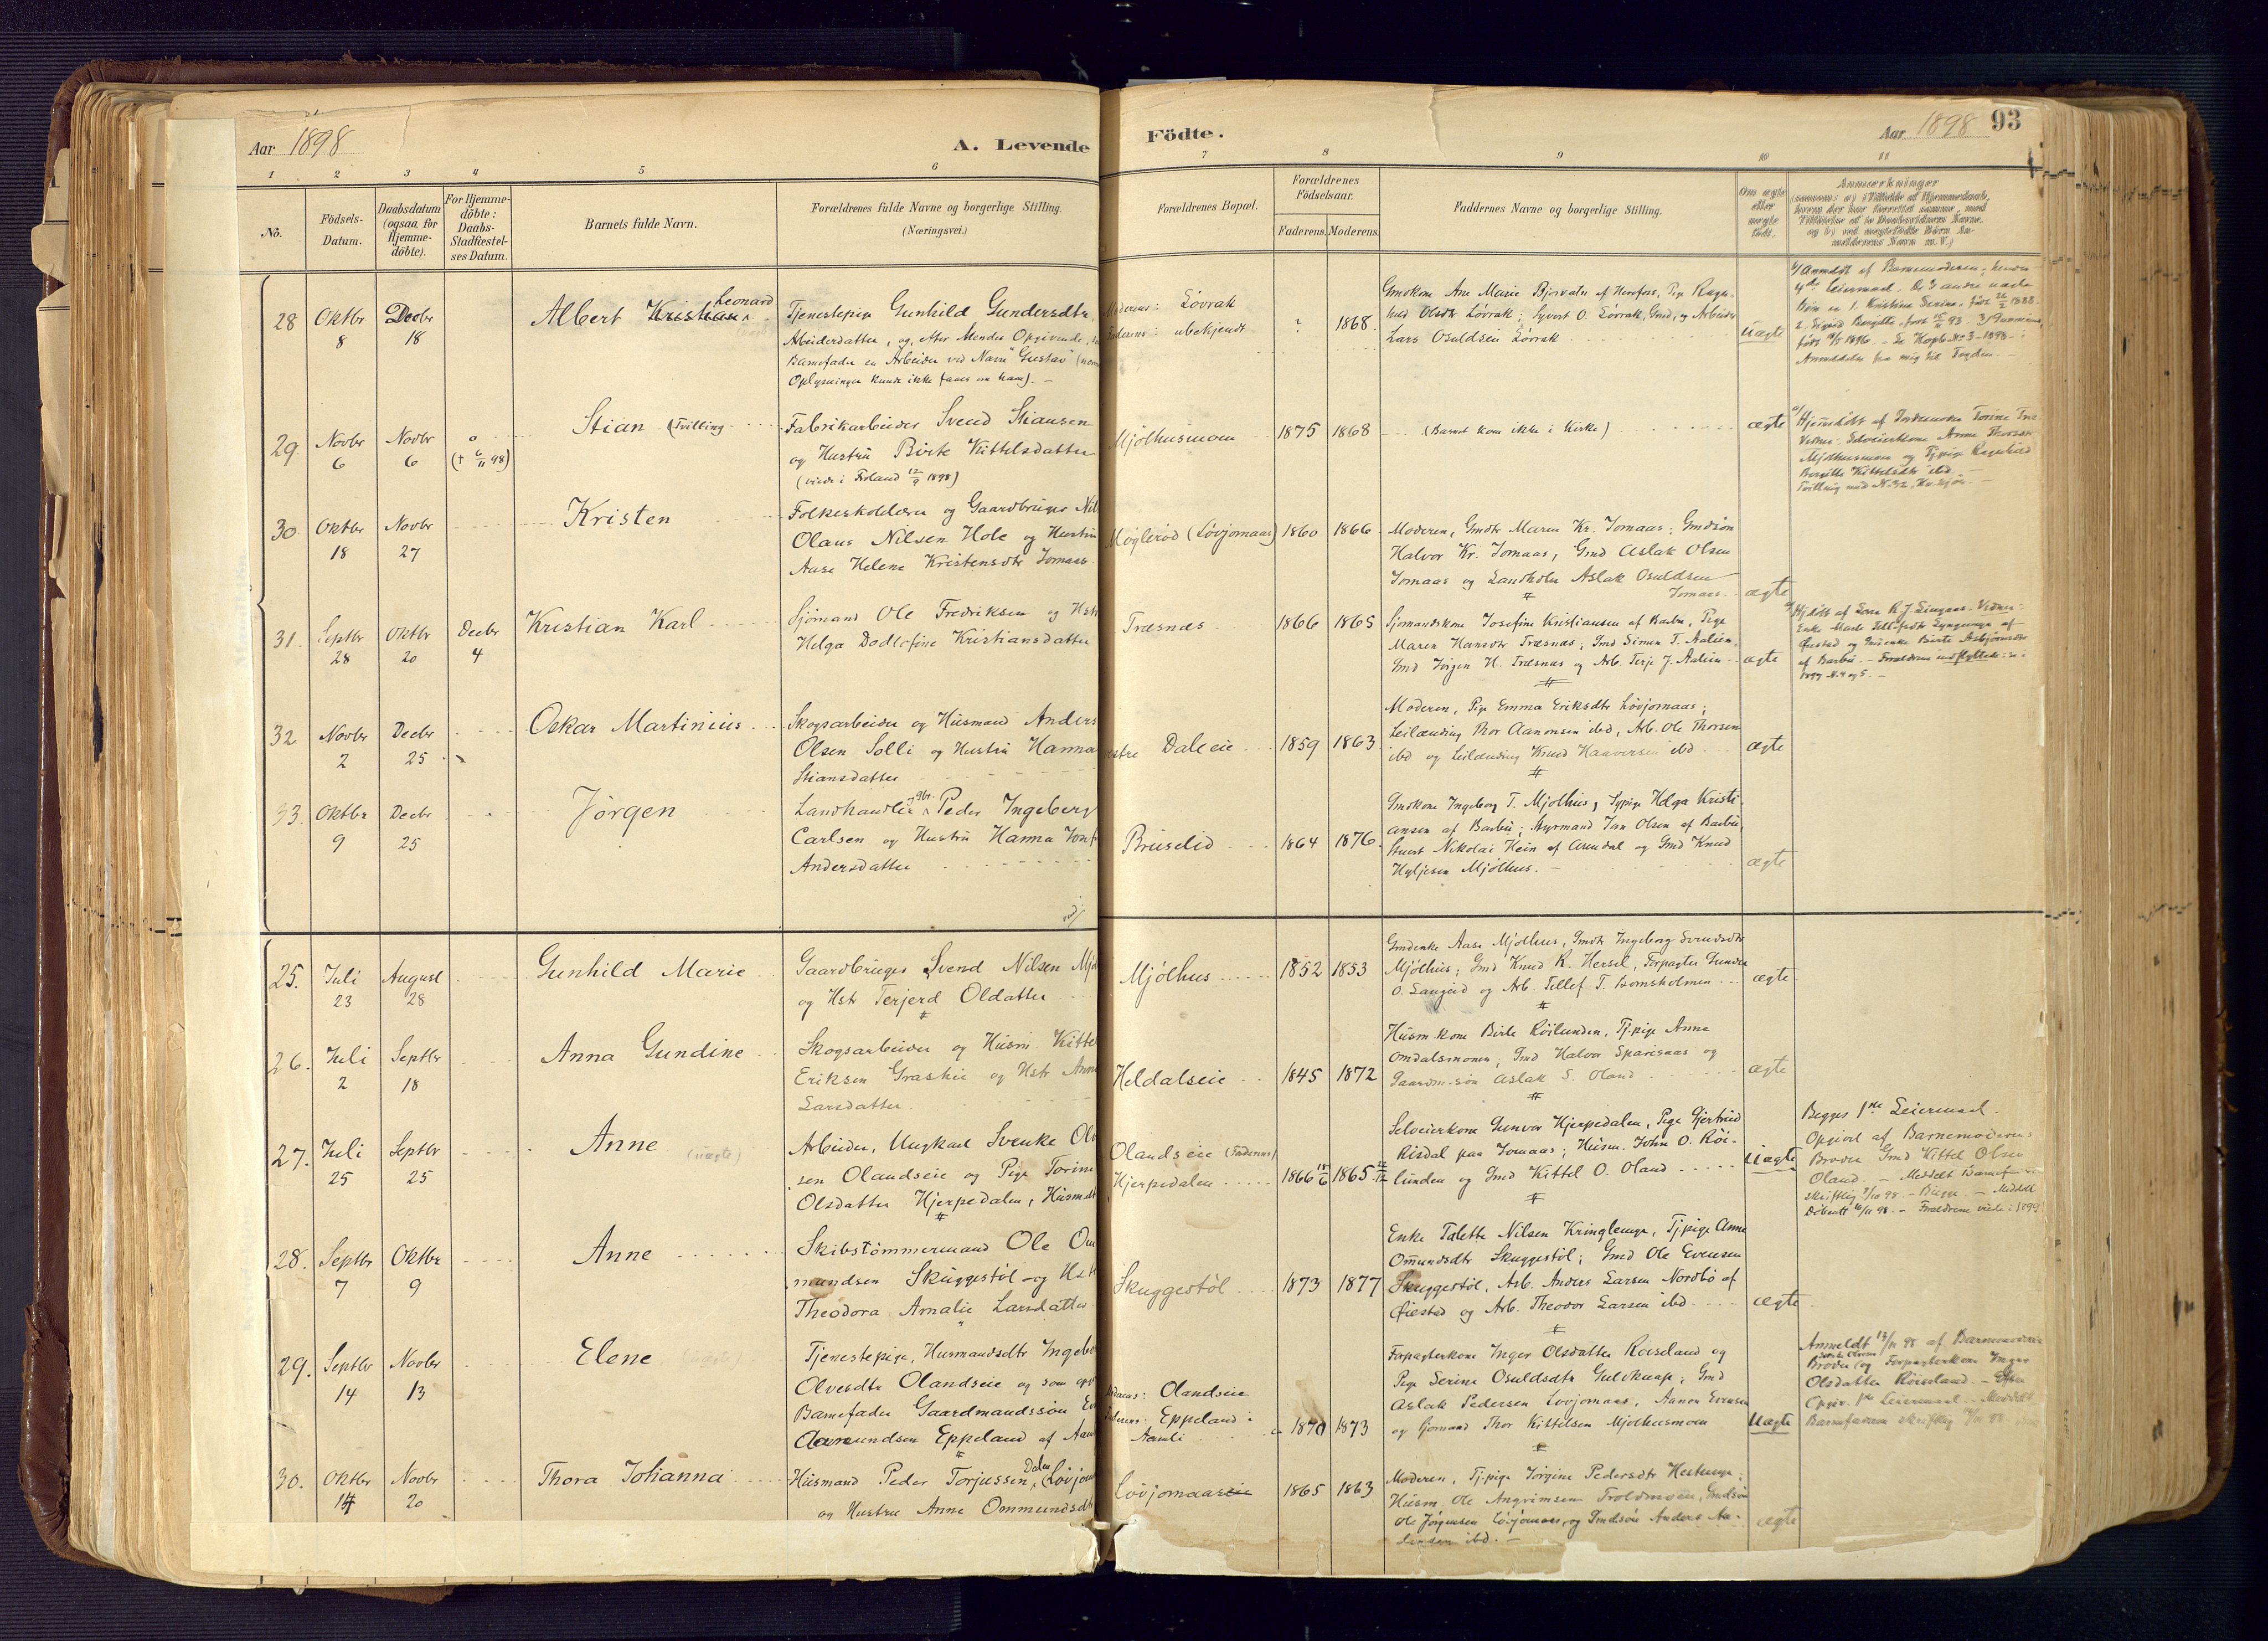 Aar 1898
A. Levende
Födte.
Aar 1898
93
1 2 3 4 5 6 7 8 9 10 11
No.
Födsels-Datum.
Daabsdatum (ogsaa for Hjemme-döbte).
For Hjemme-döbte: Daabs-Stadfæstel-ses Datum.
Barnets fulde Navn.
Forældrenes fulde Navne og borgerlige Stilling.
(Næringsvei.)
Forældrenes Bopæl.
Forældrenes Födselsaar.
Faderens. Moderens.
Faddernes Navne og borgerlige Stilling.
Om ægte eller uægte födt.
Anmærkninger
28 Oktbr 8 Decbr 18
Albert Kristian Leonard
Tjenestepige Gunhild Gundersdtr,
Arbeiderdatter, og, efter Mendes Opgivende,
Barnefader en Arbeider ved Navn "Gustav"
Oplysninger kunde ikke faaes om ham). -
Moderens: Lövrak
Faderens: ubekjendt
? 1868.
Gmdkone Ane Marie Bjorvatn af Herefoss, Pige Ragn-
hild Olsdtr Lövrak; Syvert O. Lövrak, Gmd, og Arbeider
Lars Osuldsen Lövrak
Uægte
b/ Anmeldt af Barnemoderen; hendes
4de Leiermaal. De 3 andre uægte
Börn er 1. Kristine Serine, födt 22/2 1888.
2. Sigrid Birgitte, födt 15/11 93 3)
födt 9/5 1896. - Se Kopb. Nr 3 - 1898 -
Anmeldelse fra mig til Fogden
29 Novbr 6 Novbr 6
o
(† 6/11 98)
Stian (Tvilling
Fabrikarbeider Svend Stiansen
og Hustru Birte Kittelsdatter
(viede i Froland 12/9 1898)
Mjölhusmoen
1875 1868
(Barnet kom ikke i Kirke)
ægte
a/ Hjemmedöbt af Jordemoder Torine
Vidner: Selveierkone Anne
Mjölhusmoen og Tj.pige Ragnhild
Birgitte Kittelsdtr ibd. -
Tvilling med N. 32, Kv.kjön. -
30. Oktbr 18 Novbr 27
Kristen
Folkeskolelærer og Gaardbruger Nils
Olaus Nilsen Hole og Hustru
Aase Helene Kristensdtr Jomaas
Möglerød (Lövjomaas)
1860 1866
Moderen, Gmdtr Maren Kr. Jomaas; Gmdsön
Halvor Kr. Jomaas, Gmd Aslak Olsen
Jomaas og Landhdler Aslak Osuldsen
Jomaas.
ægte
31. Septbr 28 Oktbr 20 Decbr 4
Kristian Karl
Sjömand Ole Fredriksen og Hstr
Helga Dodlofine Kristiansdatter
Træsnæs
1866 1865
Sjömandskone Josefine Kristiansen af Barbu, Pige
Maren Hansdtr Træsnæs; Gmd Simen T. Aalien.
Gmd Jörgen H. Træsnæs og Arb. Terje J. Aalien
ægte
a/ Hjdöbt af Lærer R. J. Vidner:
Enke Marte Tellefsdtr af
Öiestad og Gmdenke Birte Asbjörnsdtr
af Barbu. - Forældrene indflyttede
1899 N. 4 og 5. -
32 Novbr 2 Decbr 25
Oskar Martinius
Skogsarbeider og Husmand Anders
Olsen Solli og Hustru Hanna
Stiansdatter
Dale eie
1859 1863
Moderen, Pige Emma Eriksdtr Lövjomaas;
Leilænding Thor Aanonsen ibd, Arb. Ole Thorsen
ibd og Leilænding Knud Haaversen ibd
ægte
33. Oktbr 9 Decbr 25
Jörgen
Landhandler og Gbr. Peder Ingeberg
Carlsen og Hustru Hanna
Andersdatter
Bruselid
1864 1876.
Gmdkone Ingeborg T. Mjölhus, Sypige Helga Kristi-
ansen af Barbu; Styrmand Jan Olsen af Barbu,
Stuert Nikolai Hein af Arendal og Gmd Knud
Hyljesen Mjölhus. -
ægte
25. Juli 23 August 28
Gunhild Marie
Gaardbruger Svend Nilsen Mjöl
og Hstr Terjerd Oldatter
Mjölhus
1852 1853
Gmdenke Aase Mjölhus, Gmdtr Ingeborg Svendsdtr
Mjölhus; Gmd Knud R. Hersel, Forpagter Gunder
O. Laugeid og Arb. Tellef T. Bomsholmen
ægte
26. Juli 2 Septbr 18
Anna Gundine
Skogsarbeider og Husm. Kittel
Eriksen Græshei og Hstr Anne
Larsdatter
Heldalseie
1845 1872
Husm.kone Birte Röilunden, Tj.pige Anna
Omdalsmoen; Gmd Halvor Sparsnaas og
Gaardm.sön Aslak S. Oland
ægte
27. Juli 25 Septbr 25
Anne (uægte)
Arbeider, Ungkarl Svenke Ol
sen Olandseie og Pige Torine
Olsdatter Hjerpedalen, Husmdtr
Olandseie (Faderens)
Hjerpedalen
1866 18/6 1865
Selveierkone Gunvor Hjerpedalen, Pige Gjertrud
Risdal paa Jomaas; Husm. John O. Röi-
lunden og Gmd Kittel O. Oland
Uægte
Begges 1ste Leiermaal.
Opgivet af Barnemoderens
Broder Gmd Kittel Olsen
Oland. - Meddelt Barnef.
skriftlig 7/10 98. - Begge - Meddelt
16/11 98. - Forældrene viede: 1899
28. Septbr 7 Oktbr 9
Anne
Skibstömmermand Ole Om
mundsen Skuggestöl og Hstr
Theodora Amalie Larsdatter
Skuggestöl
1873 1877
Enke Talette Nilsen Kringlemyr, Tjpige Anne
Ommundsdtr Skuggestöl; Gmd Ole Evensen
Skuggestöl, Arb. Anders Larsen Nordbö af
Öiestad og Arb. Theodor Larsen ibd.
ægte
29. Septbr 14 Novbr 13
Elene (uægte)
Tjenestepige, Husmandsdtr Ingebor
Olvesdtr Olandseie og som opg
Barnefader Gaardmandssön
Aanundsen Eppeland af Aam
Moderens: Olandseie
Faderens: Eppeland i
Aamli
1870 1873
Forpagterkone Inger Olsdatter Roiseland og
Pige Serine Osuldsdtr Guldknap; Gmd
Aslak Pedersen Lövjomaas, Aanon Evensen
og Gmand Thor Kittelsen Mjölhusmoen
Uægte
Anmeldt 13/11 98 af Barnemoderens
Broder og Forpagterkone Inger
Olsdatter Röiseland.
Opgiv. 1ste Leiermaal. Meddelt
Barnefaderen skriftlig 14/11 98
30. Oktbr 14 Novbr 20
Thora Johanna
Husmand Peder Torjussen Dalen (Lövjom
og Hustru Anne Ommundsdtr
Lövjomaaseie
1865 1863
Moderen, Tj.pige Jörgine Pedersdtr Hestmyr;
Husm. Ole Angrimsen Troldmoen, Gmdsön
Ole Jörgensen Lövjomaas, og Gmdsön Anders Aa-
ibd. -
ægte